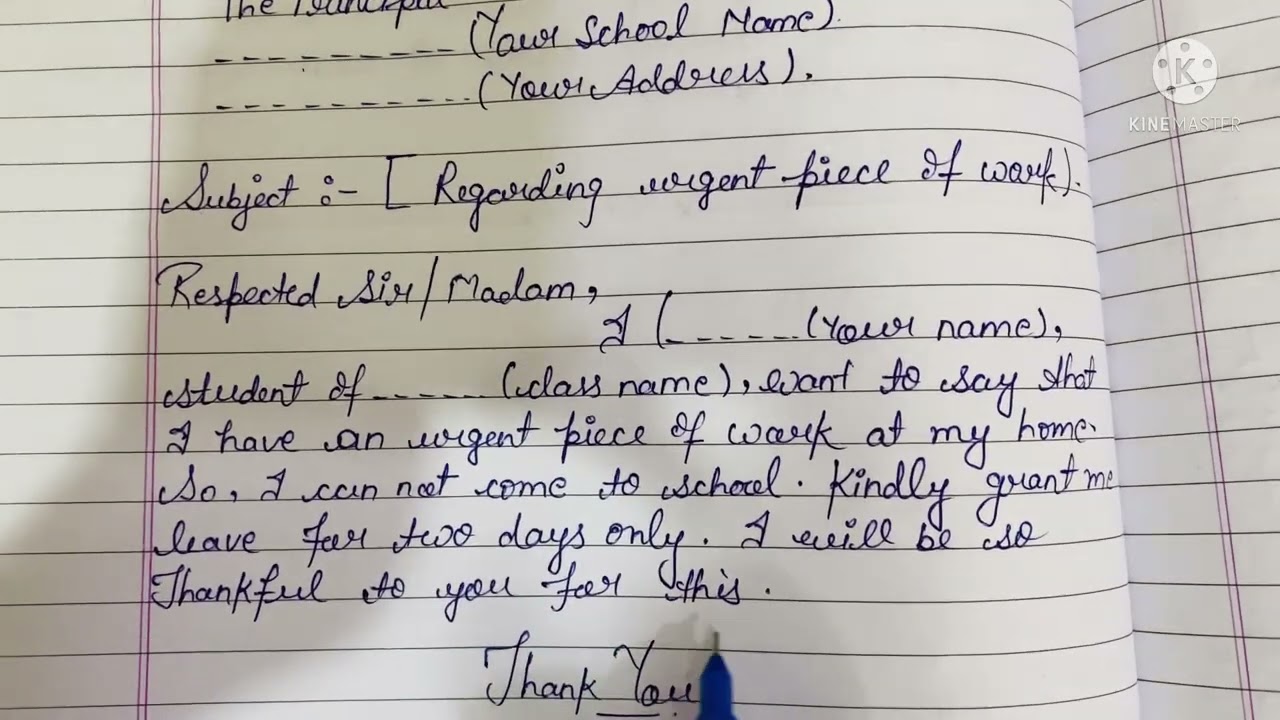 The Principal
---------- (Your School Name).
----------- (Your Address).
KINEMASTER
Subject :- [ Regarding urgent piece of work).
Respected Sir/Madam,
I (------ (Your name),
student of ------ (class name), want to say that
I have an urgent piece of work at my home.
So, I can not come to school. Kindly grant me
leave for two days only. I will be so
Thankful to you for this.
Thank You